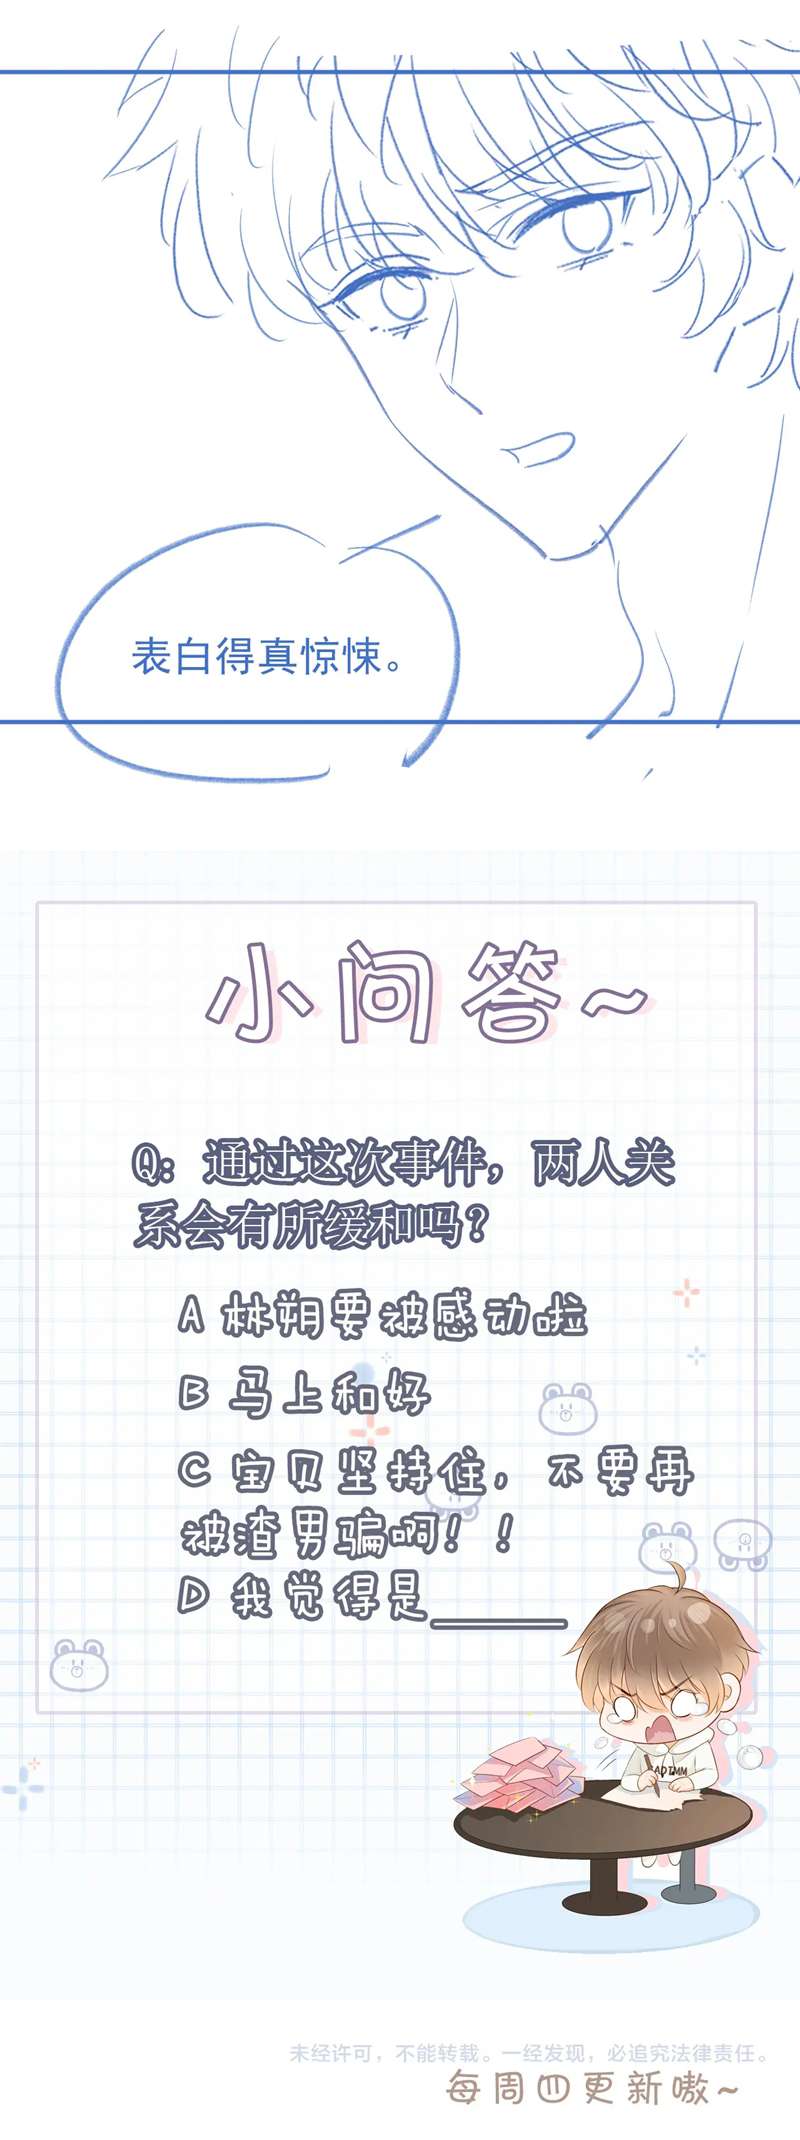 表白得真惊悚。
小问答~
Q：通过这次事件，两人关
系会有所缓和吗？
A 林朔要被感动啦
B 马上和好
C 宝贝坚持住，不要再
被渣男骗啊！！
D 我觉得是______
ADTMM
未经许可，不能转载。一经发现，必追究法律责任。
每周四更新嗷~